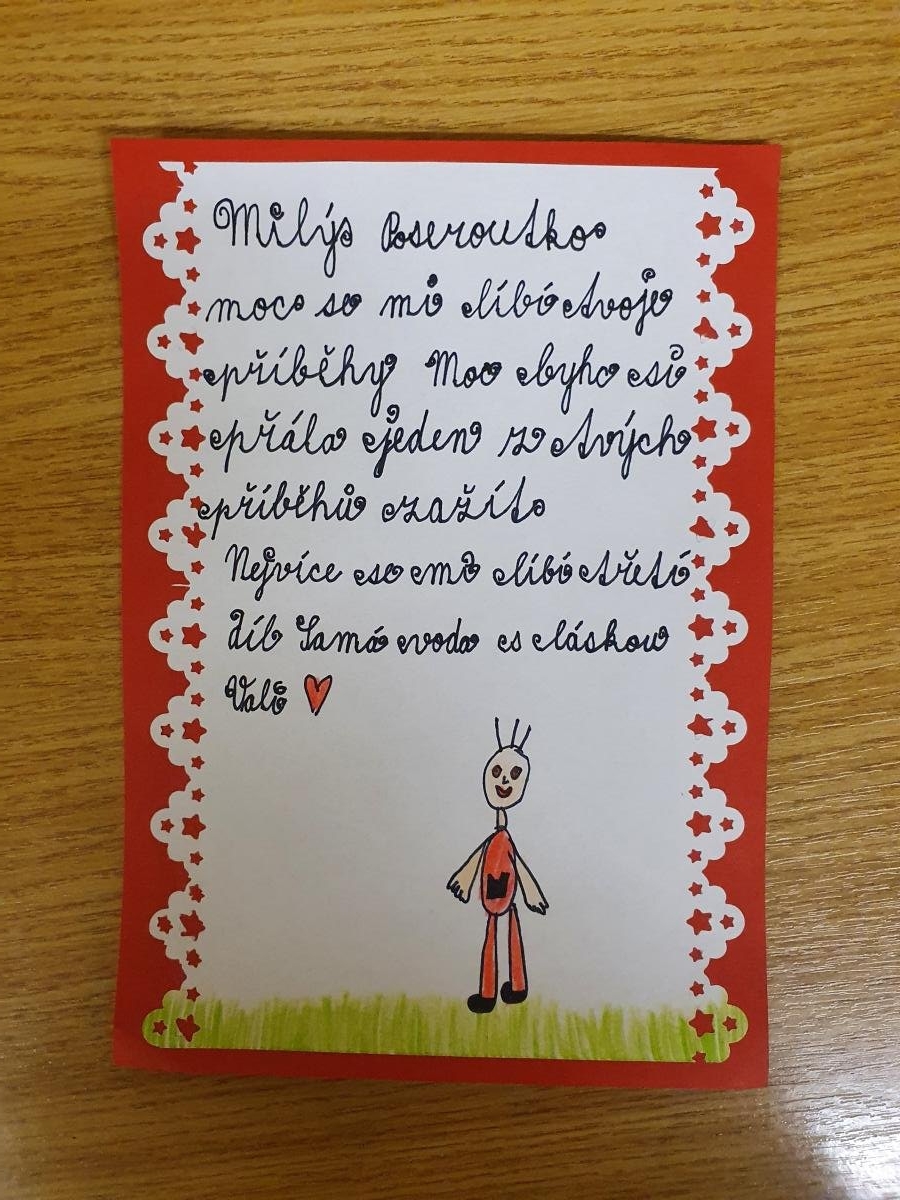 Milý Poseroutko
moc se mi líbí tvoje
příběhy Moc bych si
přála jeden z tvých
příběhů zažít.
Nejvíce se mi líbí třetí
díl Samá voda s láskou
Vali